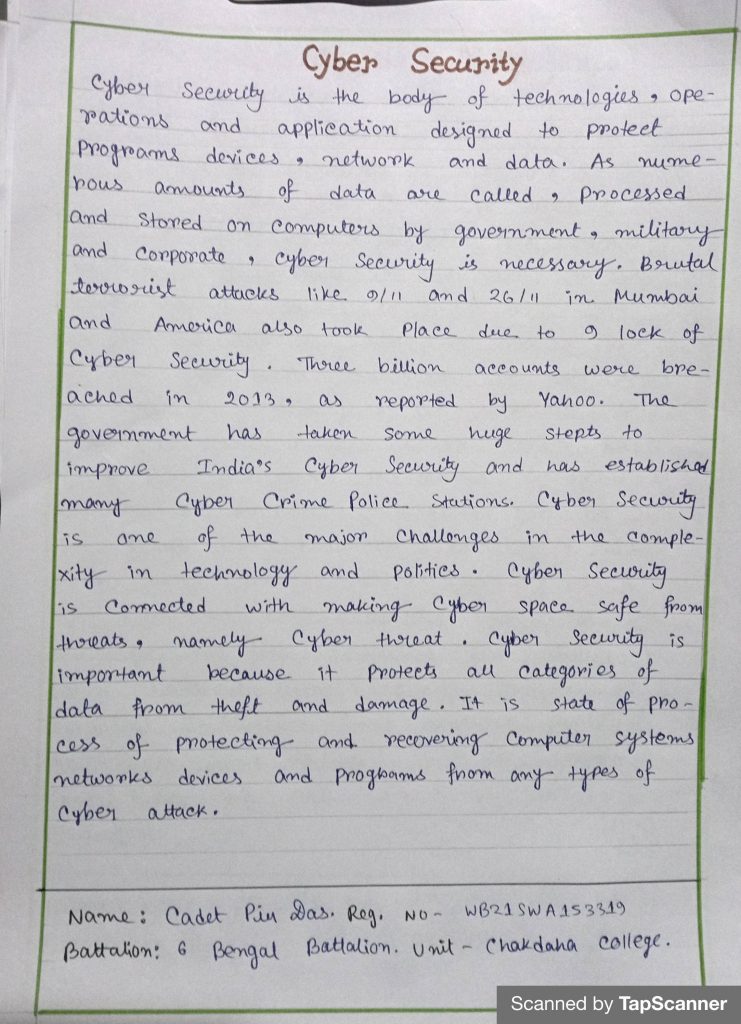 Cyber Security
Cyber Security is the body of technologies, ope-
rations and application designed to protect
programs devices, network and data. As nume-
rous amounts of data are called, processed
and stored on computers by government, military
and corporate, cyber security is necessary. Brutal
terrorist attacks like 9/11 and 26/11 in Mumbai
and America also took place due to 9 lock of
Cyber Security. Three billion accounts were bre-
ached in 2013, as reported by Yahoo. The
government has taken some huge stepts to
improve India's Cyber Security and has established
many Cyber Crime Police Stations. Cyber Security
is one of the major challenges in the comple-
xity in technology and politics. Cyber Security
is connected with making Cyber space safe from
threats, namely Cyber threat. Cyber Security is
important because it protects all categories of
data from theft and damage. It is state of pro-
cess of protecting and recovering computer systems
networks devices and programs from any types of
Cyber attack.
Name: Cadet Piu Das. Reg. No- WB21SWA153319
Battalion: 6 Bengal Battalion. Unit - Chakdaha College.
Scanned by TapScanner